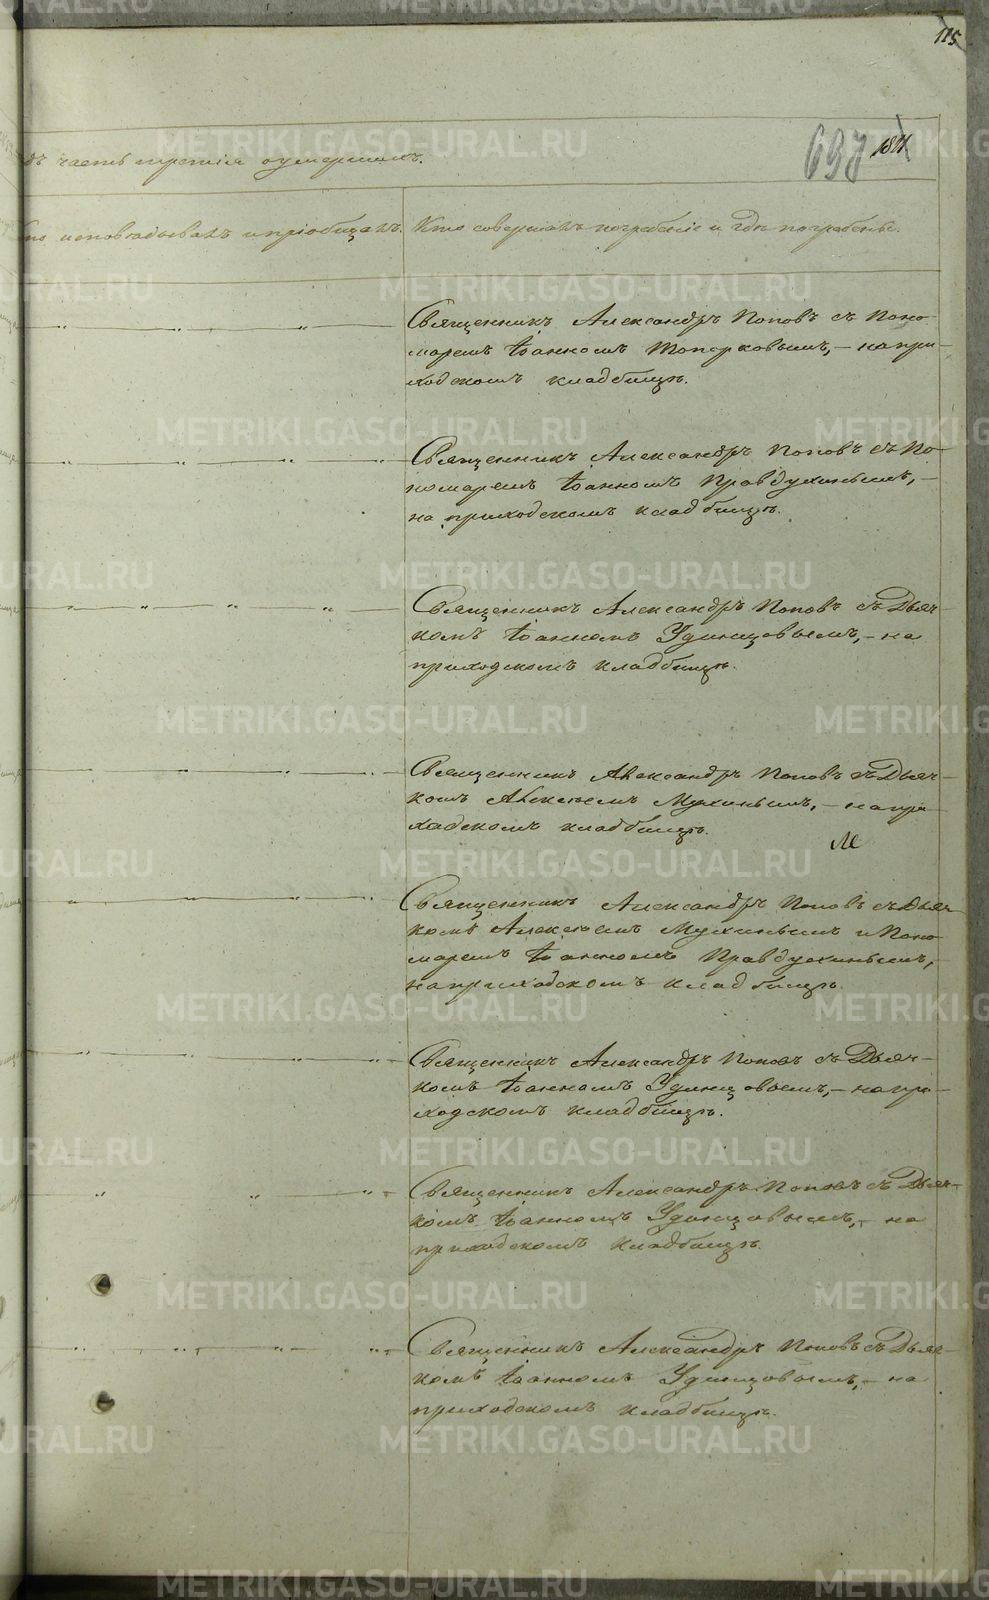 115
697 181
дъ часть третія о умершихъ.
то исповѣдывалъ и пріобщалъ.
Кто совершалъ погребеніе и гдѣ погребены.
Священникъ Александръ Поповъ съ Поно-
маремъ Іоанномъ Топорковымъ, - на при-
ходскомъ кладбищѣ.
Священникъ Александръ Поповъ съ По-
номаремъ Іоанномъ Правдухинымъ, -
на приходскомъ кладбищѣ.
Священникъ Александръ Поповъ съ Дьяч-
комъ Іоанномъ Удинцовымъ, - на
приходскомъ кладбищѣ.
Священникъ Александръ Поповъ съ Дьяч-
комъ Алексѣемъ Мухинымъ, - на при-
ходскомъ кладбищѣ.
Священникъ Александръ Поповъ съ Дьяч-
комъ Алексѣемъ Мухинымъ и Поно-
маремъ Іоанномъ Правдухинымъ,
на приходскомъ кладбищѣ.
Священникъ Александръ Поповъ съ Дьяч-
комъ Іоанномъ Удинцовымъ, - на при-
ходскомъ кладбищѣ.
Священникъ Александръ Поповъ съ Дьяч-
комъ Іоанномъ Удинцовымъ, - на
приходскомъ кладбищѣ.
Священникъ Александръ Поповъ съ Дьяч-
комъ Іоанномъ Удинцовымъ, - на
приходскомъ кладбищѣ.
METRIKI.GASO-URAL.RU